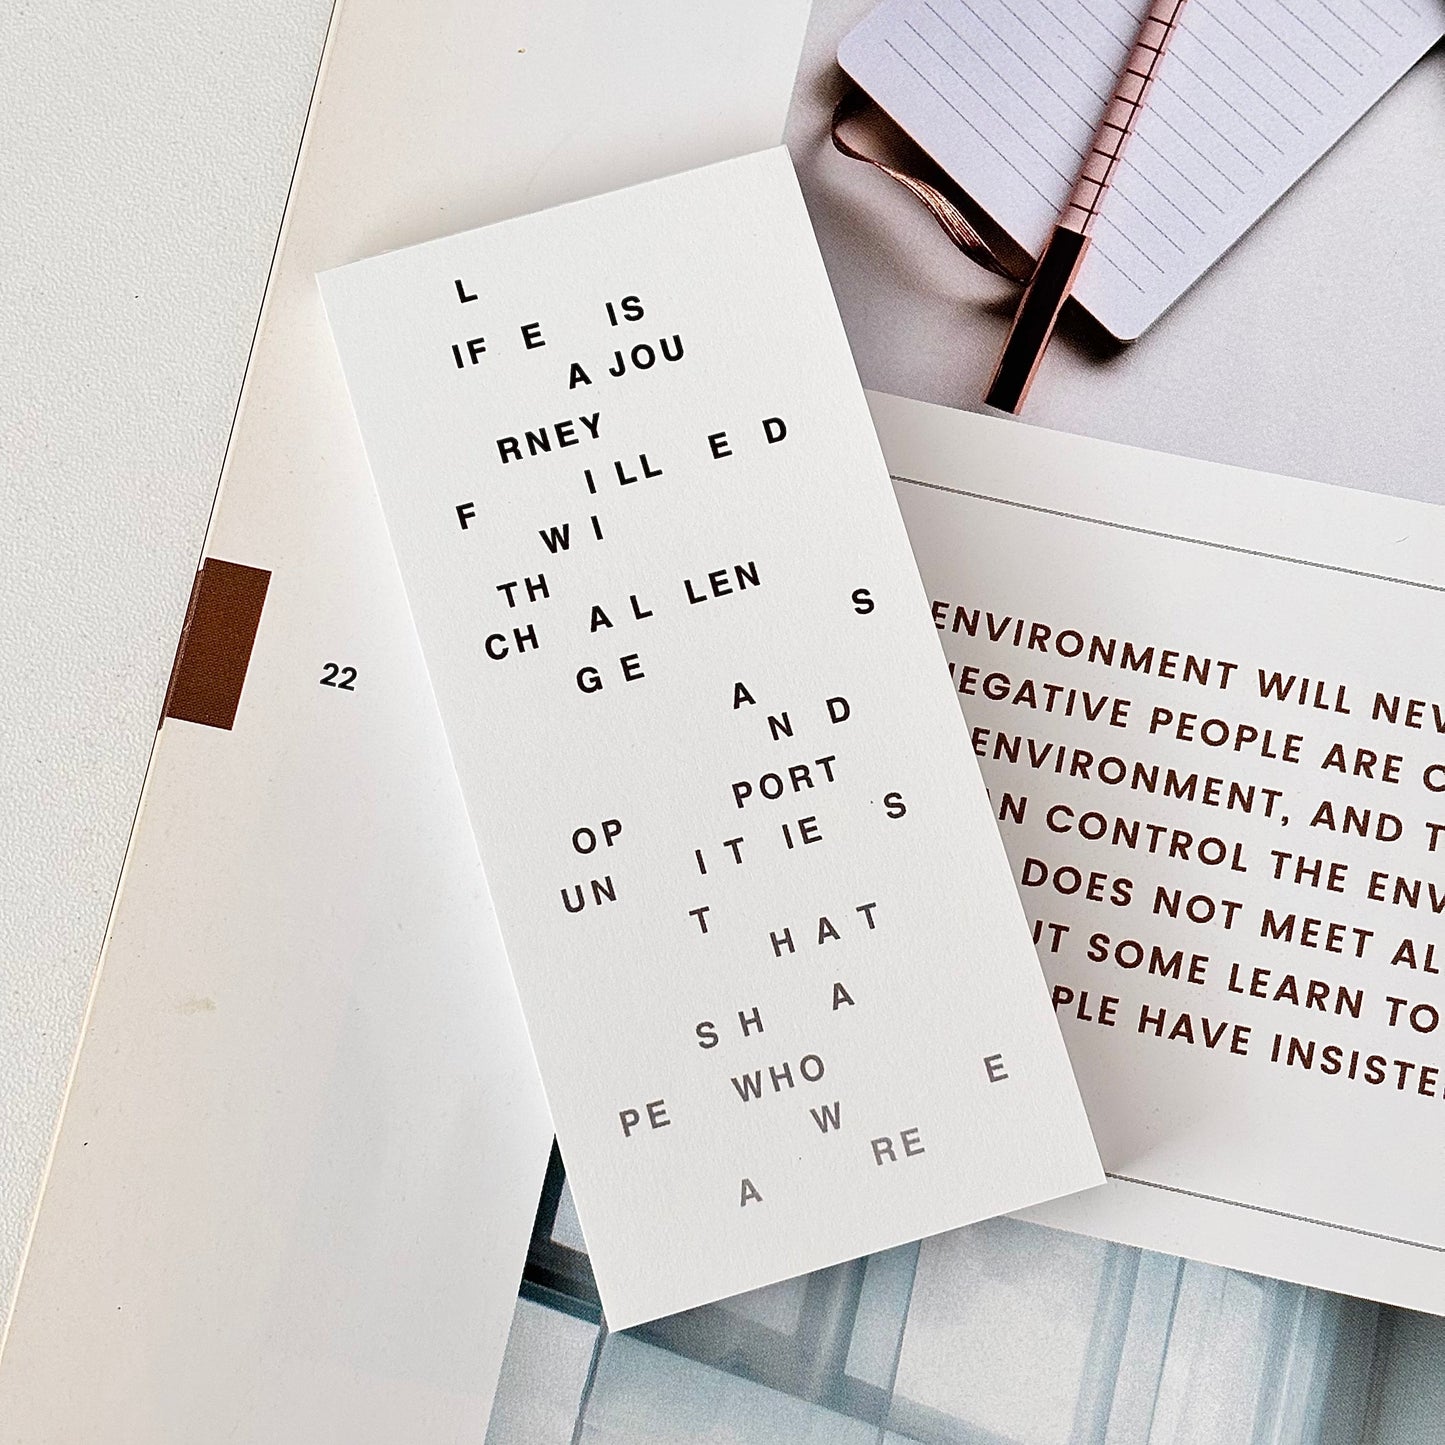 L
IF E IS
A JOU
RNEY
F I LL E D
W I
TH
CH A L LEN
G E S
A
N D
OP PORT
UN I T IE S
T
H A T
S H A
PE WHO
W E
A RE
22
ENVIRONMENT WILL NEV
NEGATIVE PEOPLE ARE C
ENVIRONMENT, AND T
N CONTROL THE ENV
DOES NOT MEET AL
UT SOME LEARN TO
PLE HAVE INSISTE